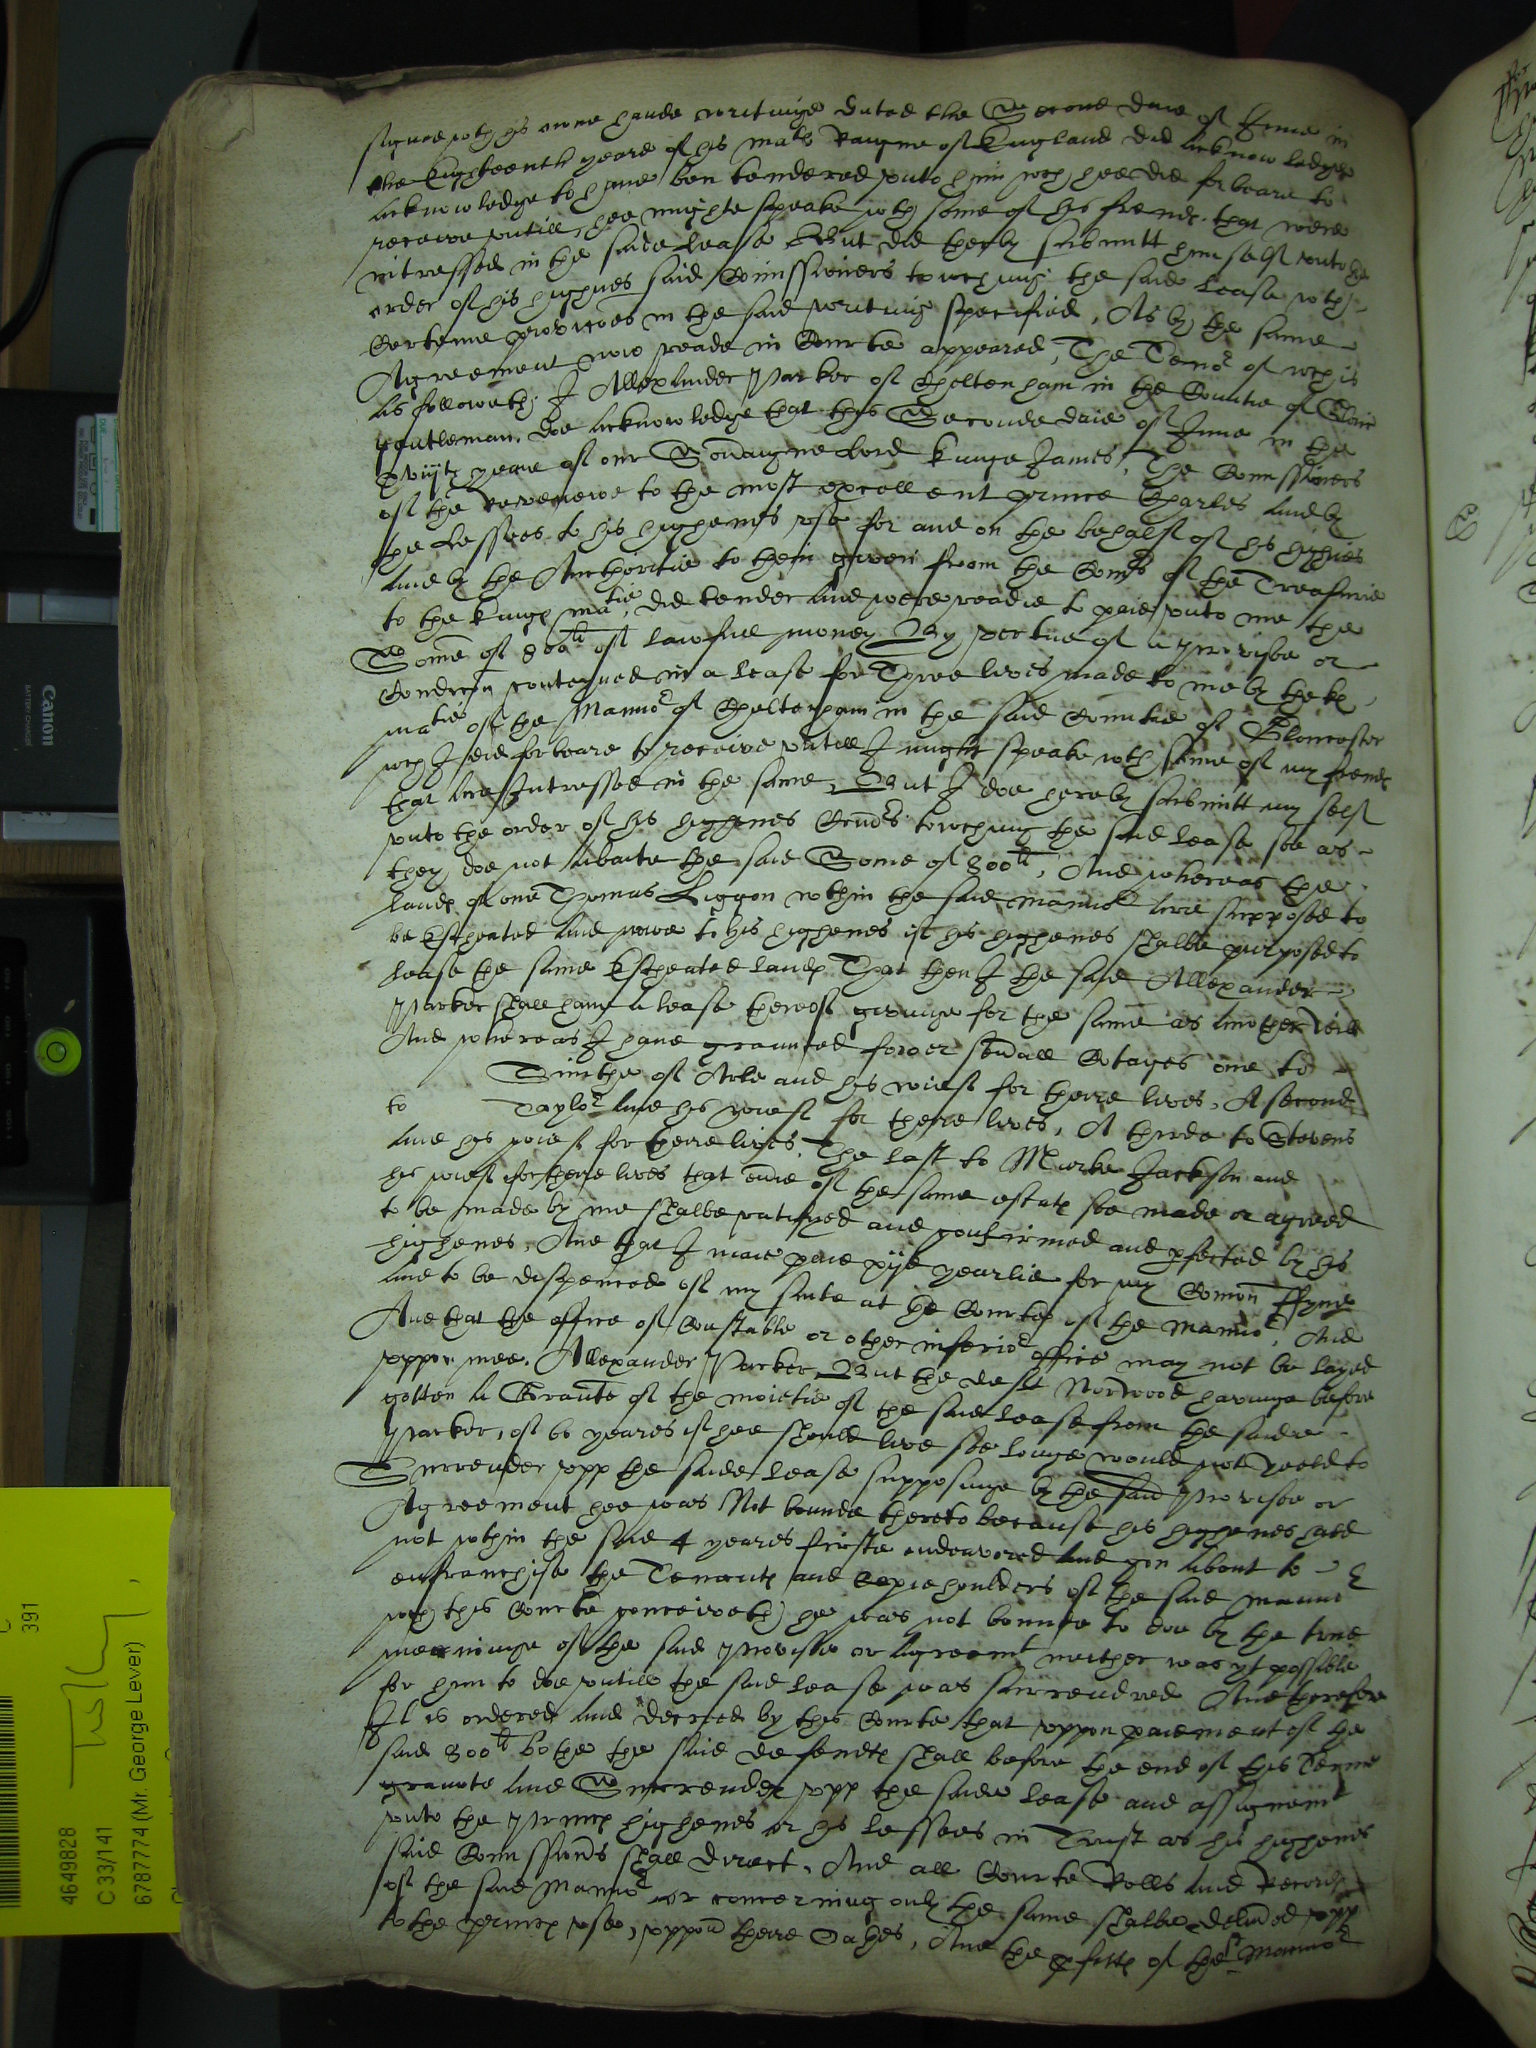 signed wth his owne hande writinge dated the Second daie of June in
the Eighteenth yeare of his mats Raigne of England did acknowledge
acknowledge to haue ben tendered vnto him wch hee did forbeare to
receive vntill hee mighte speake wth some of his frends that were
intressed in the saide lease But did therby submitt himself vnto the
order of his highnes said Comissioners towching the said lease wth
Certeine provisoes in the said writing specified, As by the same
Agreement now reade in Courte appeared, The Tenor of wch is
as followeth I Allexander Parker of Cheltenham in the Countie of Glouc
gentleman, doe acknowledge that this Seconde daie of June in the
xviijth yeare of our Soveraigne Lord Kinge James, The Comissioners
of the Revenewe to the most excellent prince Charles and by
the Lessees to his highenes vse for and on the behalf of his highnes
and by the Authoritie to them given from the Comrs of the Treasurie
to the Kings matie, did tender and were readie to paie vnto me the
Some of 800li of lawfull money By vertue of a Provisoe or
Condicon conteyned in a lease for Three lives made to me by the ks
matie of the Mannor of Cheltenham in the said Countie of Gloucester
wch I did forbeare to receive vntill I might speake wth some of my frends
that are Intressed in the same, But I doe hereby submitt my self
vnto the order of his highenes Comrs towching the said lease soe as
they doe not abaite the said Some of 800li, And whereas the
lands of one Thomas Liggon wthin the said mannor are supposed to
be Escheated and nowe to his highenes if his highenes shalbe purposed to
lease the same Escheated lands That then I the said Allexander
Parker shall haue a lease thereof givinge for the same as another will
And whereas I haue graunted fower severall Cotages one to
Smithe of Arle and his wief for theire lives, A second
to Taylor and his wief for theire lives, A thirde to Stevens
and his wief for theire lives, The last to Marke Jackson and
his wief for theire lives that everie of the same estats soe made or agreed
to be made by me shalbe ratifyed and confirmed and pfected by his
highenes, And that I maie paie xijd yearlie for my Comon Fyne
and to be dispenced of my suite at the Courts of the mannor, And
And that the office of Constable or other inferior office may not be layed
vppon mee. Allexander Parker, But the deft Norwood havinge before
gotten a Graunte of the moietie of the said lease from the saide
Parker, of 60 yeares if hee should live soe longe would not yeeld to
Surrender vpp the saide lease supposinge by the said Provisoe or
Agreement hee was Not bounde thereto because his highenes had
not wthin the said 4 yeares firste endeavored and gon about to
enfranchise the Tenants and Copiehoulders of the said mannor
wch this Courte conceiveth he was not bounde to doe by the true
meaninge of the said Provisoe or Agreemt neither was yt possible
for him to doe vntill the said lease was surrendred And therefore
It is ordered and decreed by this Courte that vppon paiement of the
said 800li bothe the said defendts shall before the end of this Terme
graunte and Surrender vpp the saide lease and assignemt
vnto the Princs highenes or his lessees in Trust as his highenes
said Comissionrs shall direct, And all Courte Rolls and Records
of the said Mannor or concerning only the same shalbe delivered vpp
to the princs vse, vppon theire Oathes, And the pfitts of the sd Mannor
Canon
BATTERY CHARGER
391
4649828
C 33/141
6787774 (Mr. George Lever)